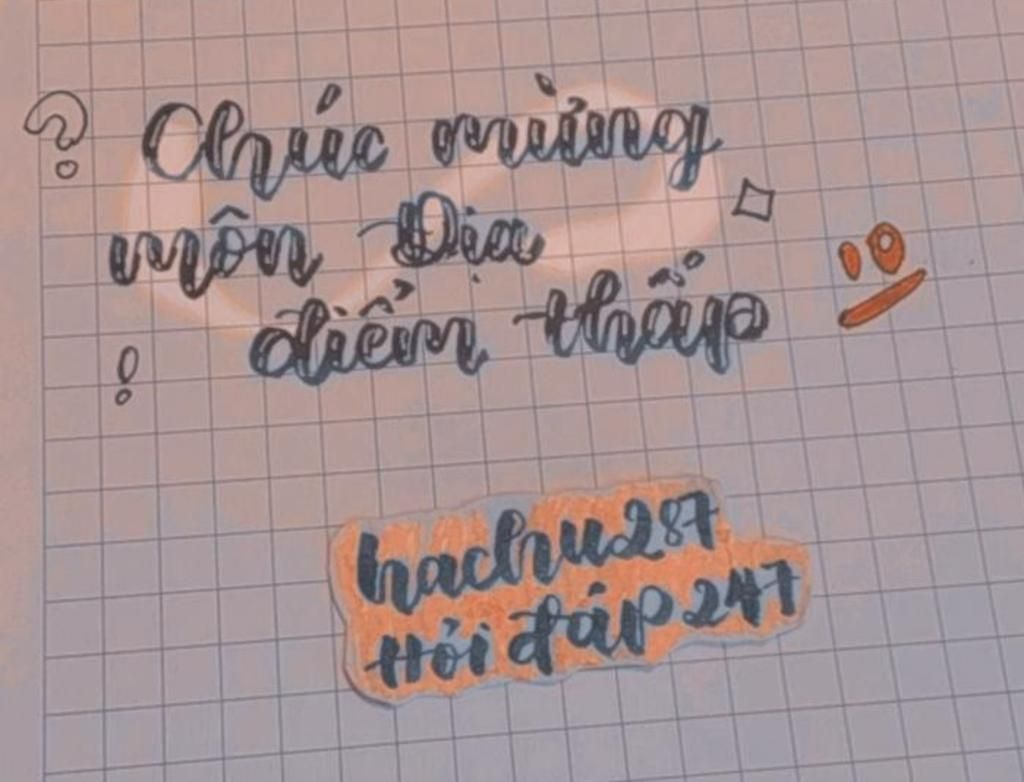 Chúc mừng
môn Địa
điểm thấp
hachu287
Hỏi đáp 247